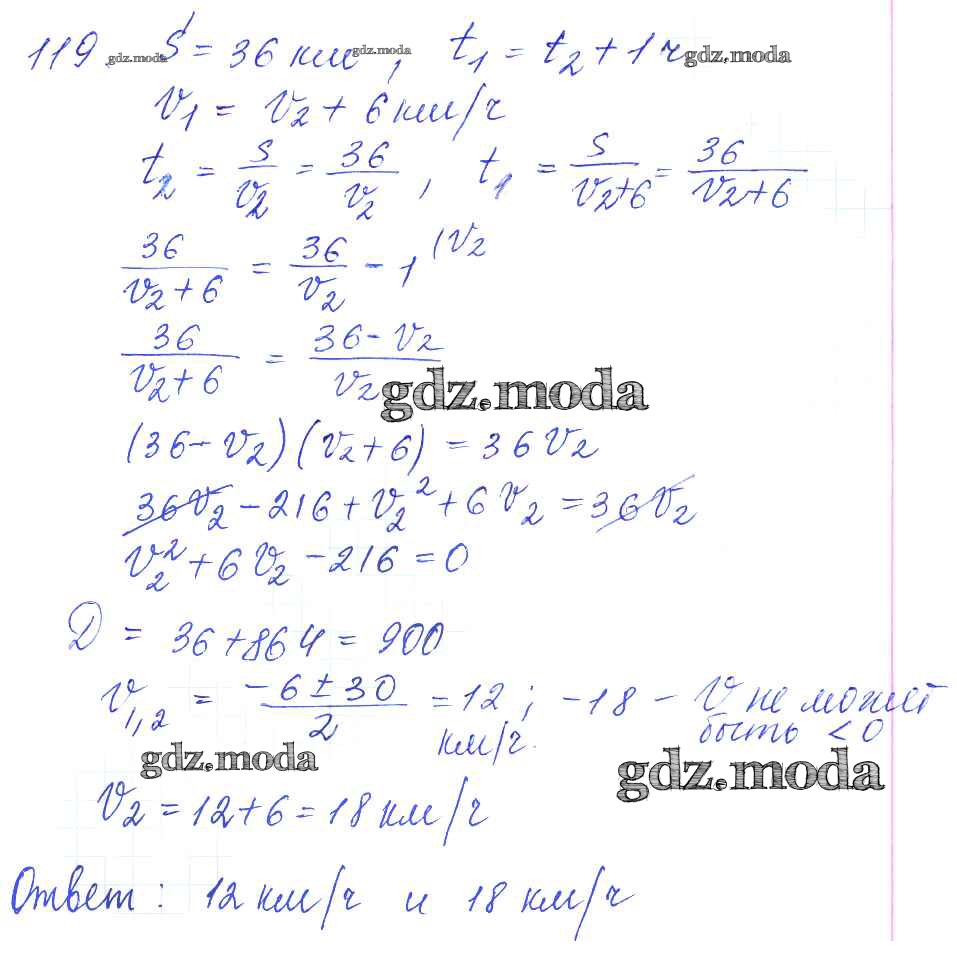 119. gdz.moda S = 36 км gdz.moda, t₁ = t₂ + 1 ч gdz.moda
v₁ = v₂ + 6 км/ч
t₂ = s/v₂ = 36/v₂, t₁ = s/(v₂+6) = 36/(v₂+6)
36/(v₂+6) = 36/v₂ - 1 (v₂
36/(v₂+6) = (36-v₂)/v₂
gdz.moda
(36-v₂)(v₂+6) = 36v₂
36v₂ - 216 + v₂² + 6v₂ = 36v₂
v₂² + 6v₂ - 216 = 0
D = 36 + 864 = 900
v₁,₂ = (-6 ± 30)/2 = 12 км/ч.; -18 - v не может быть < 0
gdz.moda gdz.moda
v₂ = 12 + 6 = 18 км/ч
Ответ: 12 км/ч и 18 км/ч